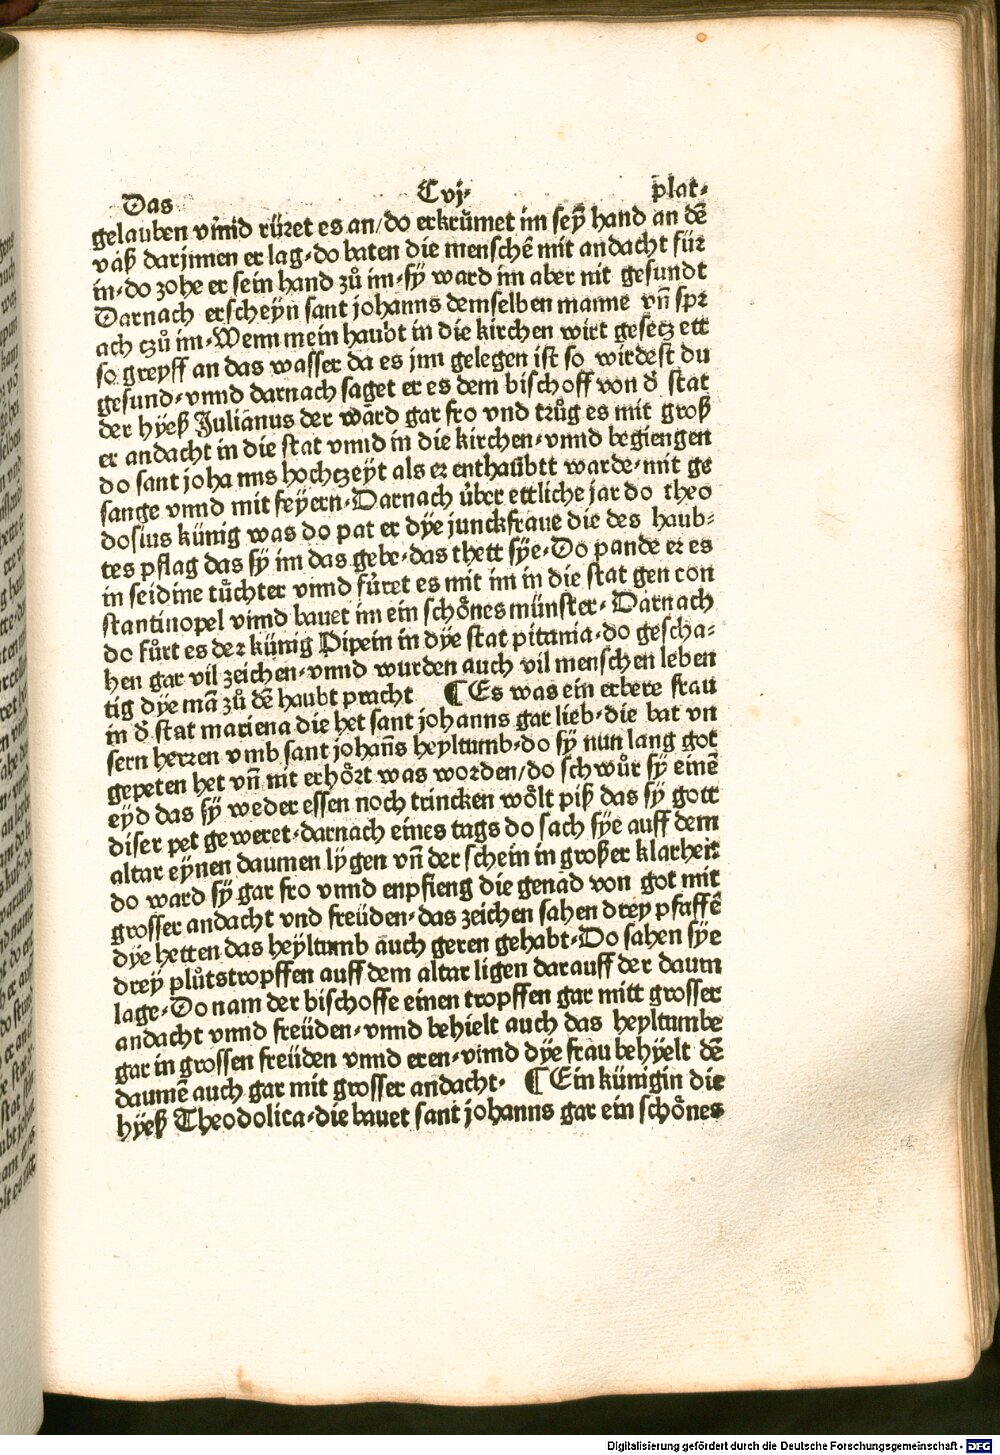 Das Cvj· plat·
gelauben vnnd rüret es an/do erkrům̃et im seÿ hand an dẽ
vaß darjnnen er lag·do baten die menschẽ mit andacht für
in·do zohe er sein hand zů im·sÿ ward im aber nit gesundt
Darnach erscheyn sant johanns demselben manne vñ spr
ach czů im·Wenn mein haubt in die kirchen wirt gesetz ett
so greyff an das wasser da es jnn gelegen ist so wirdest du
gesund·vnnd darnach saget er es dem bischoff von d̕ stat
der hÿeß Julianus der ward gar fro vnd trůg es mit groß
er andacht in die stat vnnd in die kirchen·vnnd begiengen
do sant joha nns hochczeÿt als er enthaůbtt warde·mit ge
sange vnnd mit feÿern·Darnach über ettliche jar do theo
dosius künig was do pat er dÿe junckfraue die des haub⸗
tes pflag das sÿ im das gebe·das thett sÿe·Do pande er es
in seidine tůchter vnnd fůret es mit im in die stat gen con
stantinopel vnnd bauet im ein schönes münster· Darnach
do fůrt es der künig Pipein in dÿe stat pitania·do gescha⸗
hen gar vil zeichen·vnnd wurden auch vil menschen leben
tig dÿe mã zů dẽ haubt pracht ¶ Es was ein erbere frau
in d̕ stat mariena die het sant johanns gar lieb·die bat vn
sern herren vmb sant johañs heyltumb·do sÿ nun lang got
gepeten het vñ nit erhört was worden/do schwůr sÿ einẽ
eÿd das sÿ weder essen noch trincken wölt piß das sÿ gott
diser pet geweret·darnach eines tags do sach sÿe auff dem
altar eÿnen daumen lÿgen vñ der schein in großer klarheit
do ward sÿ gar fro vnnd enpfieng die genad von got mit
grosser andacht vnd freüden·das zeichen sahen drey pfaffẽ
dÿe hetten das heÿltumb auch geren gehabt·Do sahen sÿe
dreÿ plůtstropffen auff dem altar ligen darauff der daum
lage·Do nam der bischoffe einen tropffen gar mitt grosser
andacht vnnd freüden·vnnd behielt auch das heyltumbe
gar in grossen freüden vnnd eren·vnnd dÿe frau behÿelt dẽ
daumẽ auch gar mit grosser andacht· ¶ Ein künigin die
hÿeß Theodolica·die bauet sant johanns gar ein schönes
Digitalisierung gefördert durch die Deutsche Forschungsgemeinschaft - DFG